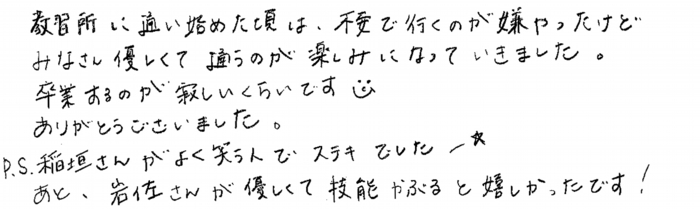 教習所に通い始めた頃は、不安で行くのが嫌やったけど
みなさん優しくて通うのが楽しみになっていきました。
卒業するのが寂しいくらいです
ありがとうございました。
P.S.稲垣さんがよく笑う人でステキでした〜☆
あと、岩佐さんが優しくて技能かぶると嬉しかったです!